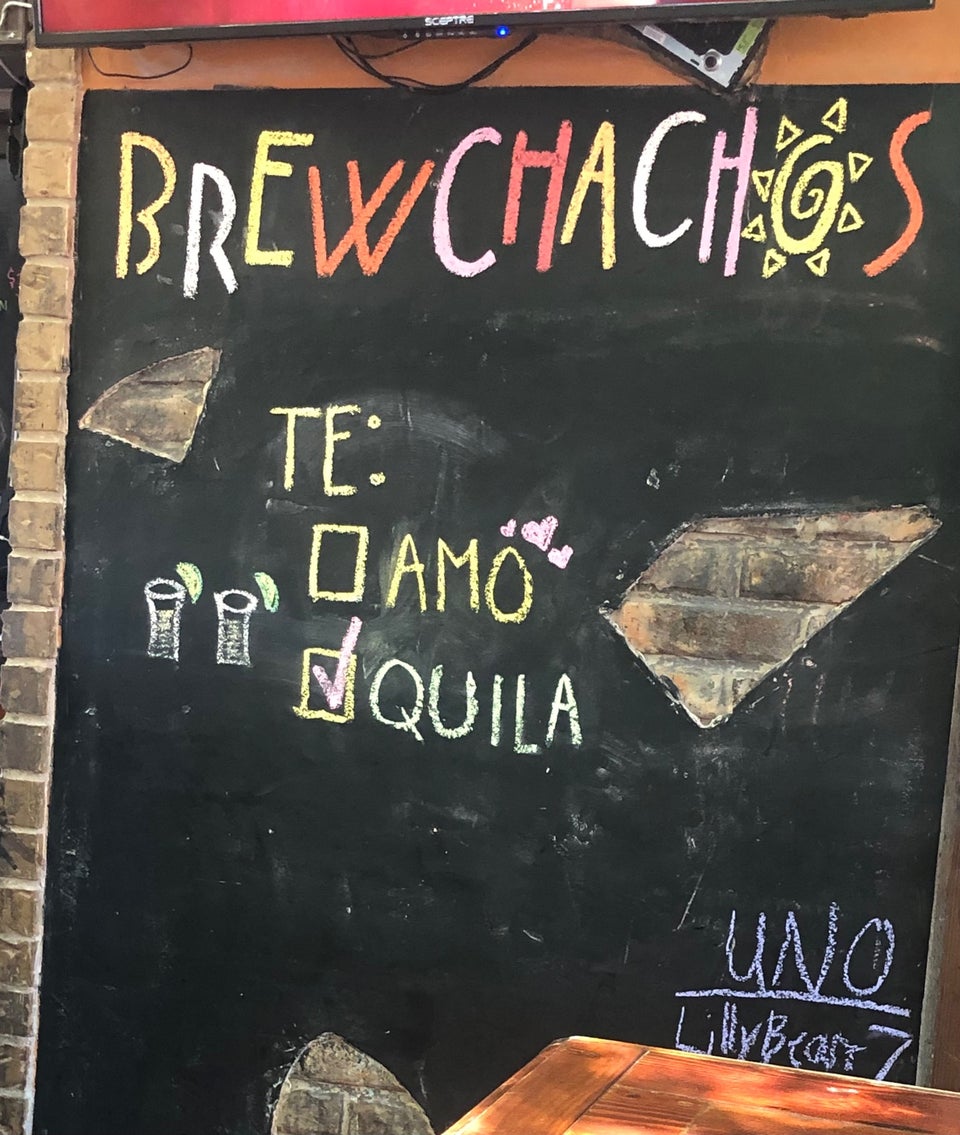 SCEPTRE
BREWCHACHOS
TE:
AMO
QUILA
UNO
LillyBear 7